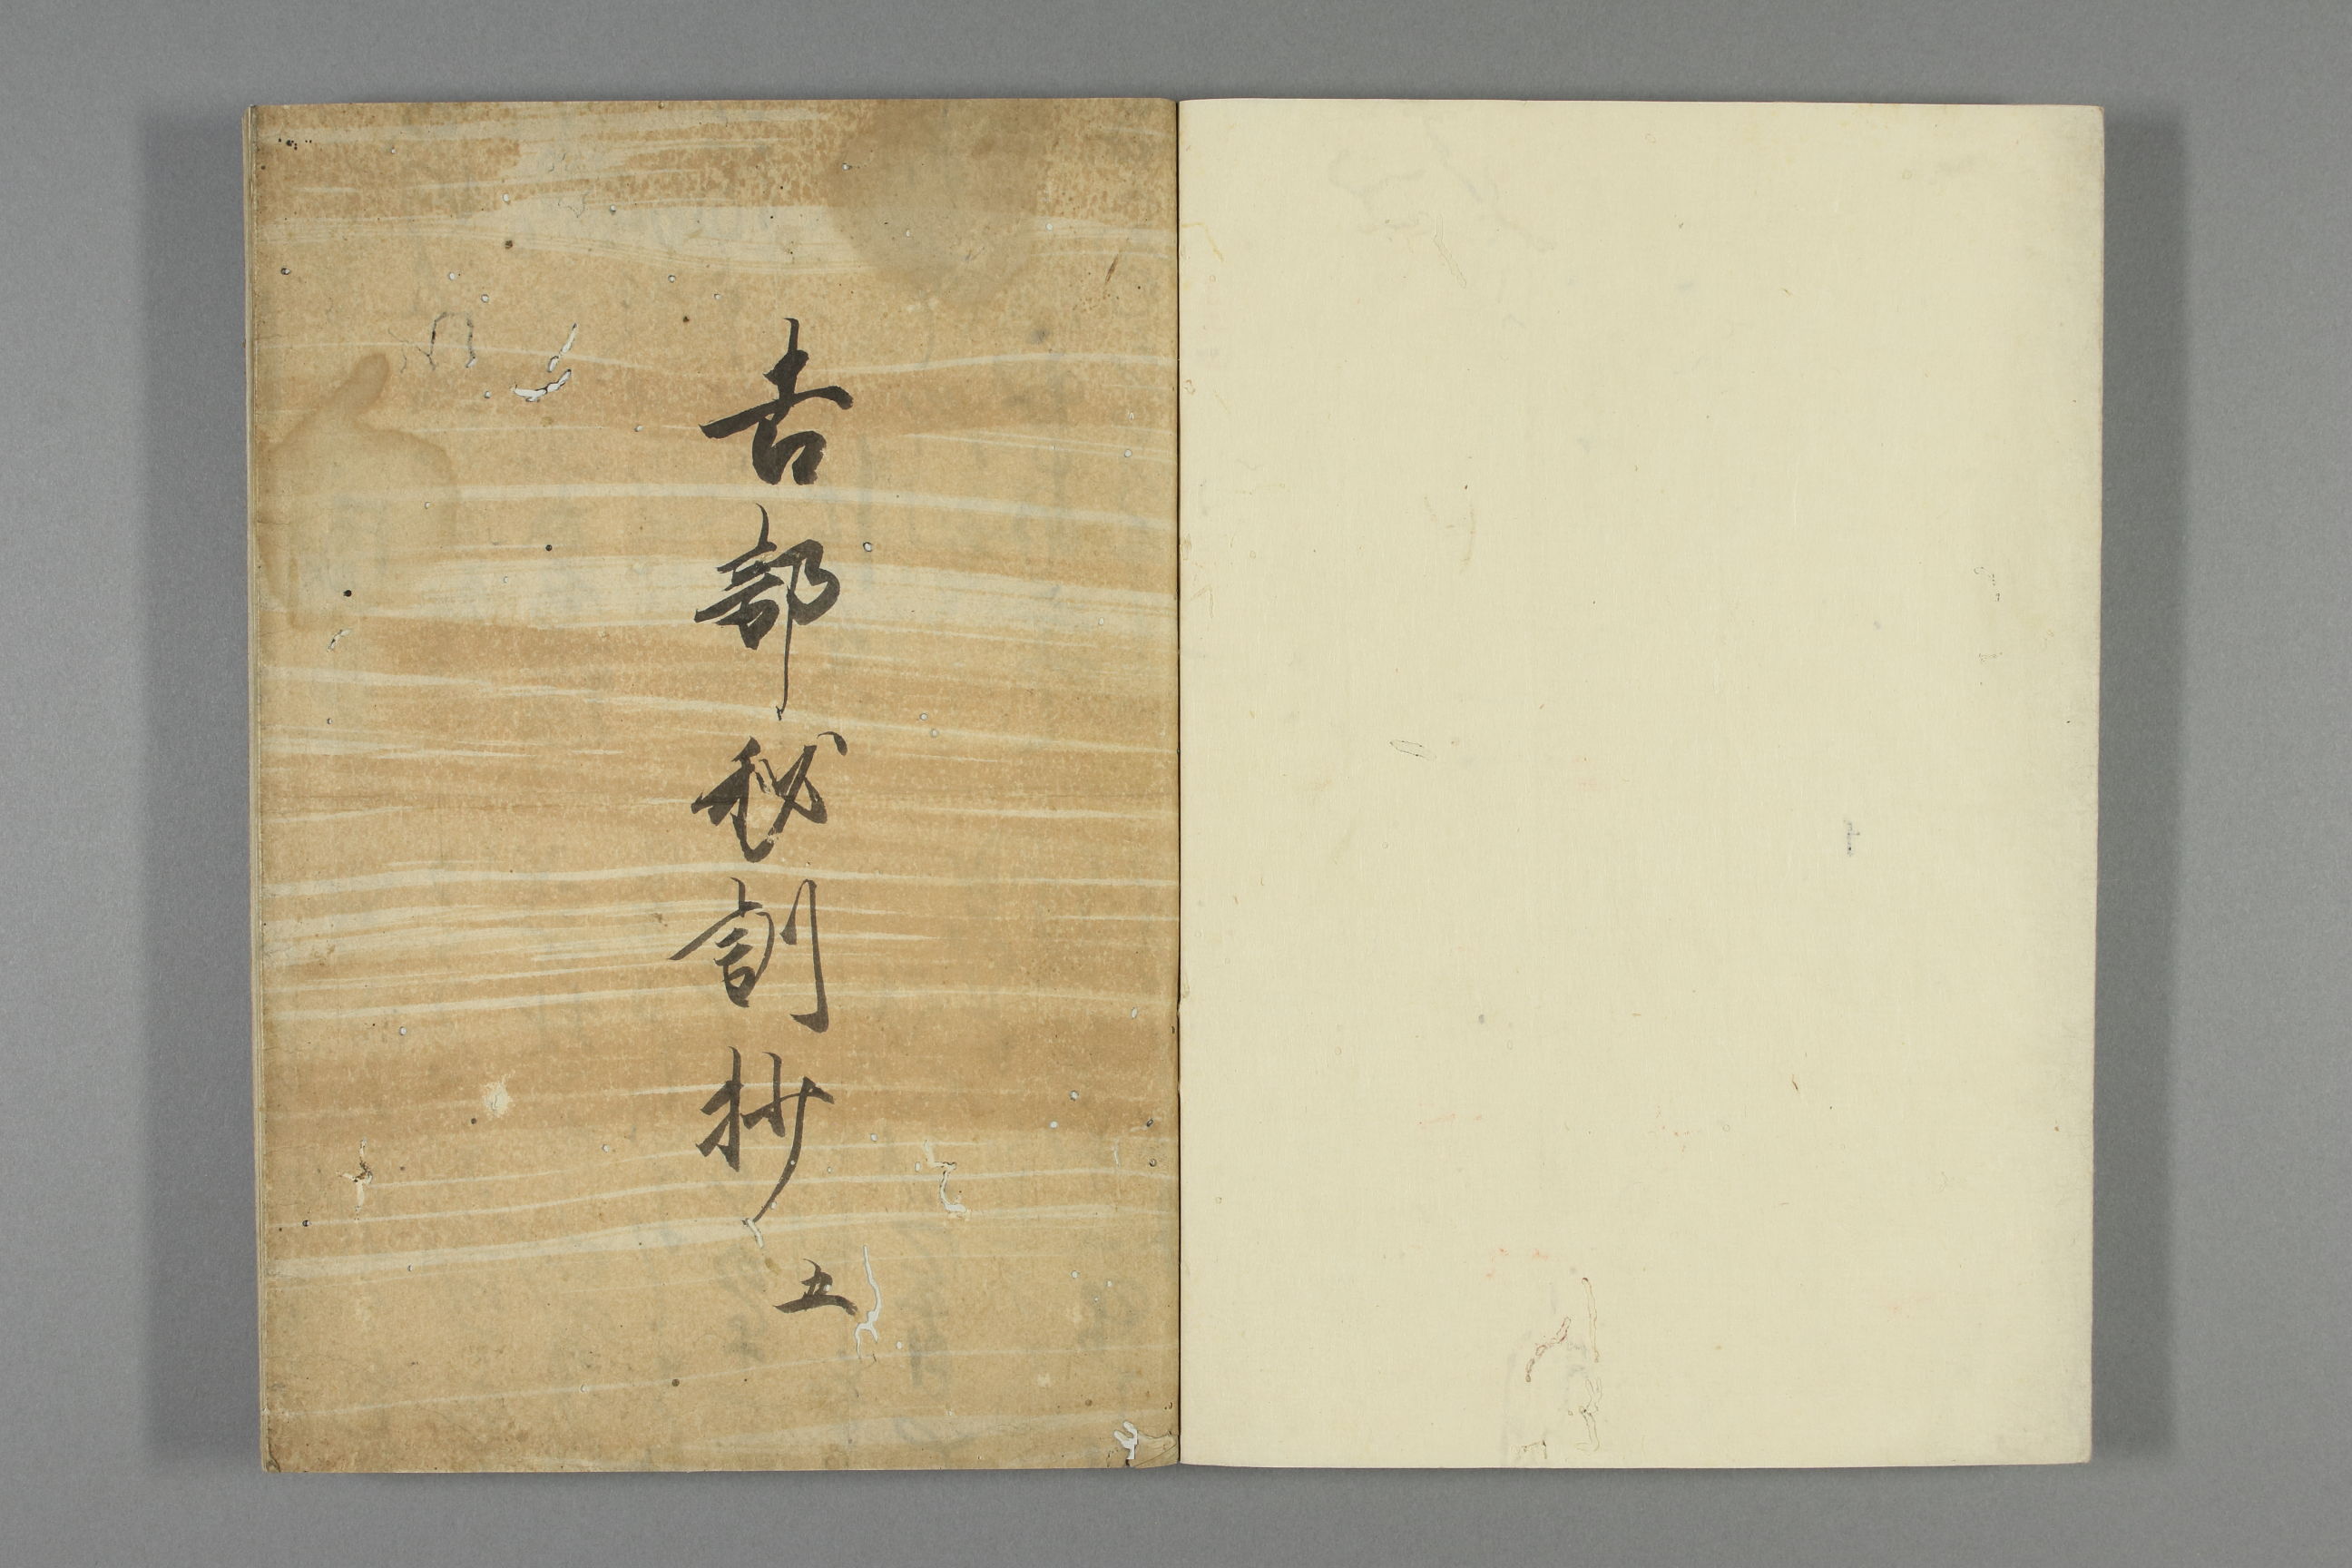 吉部秘訓抄 五